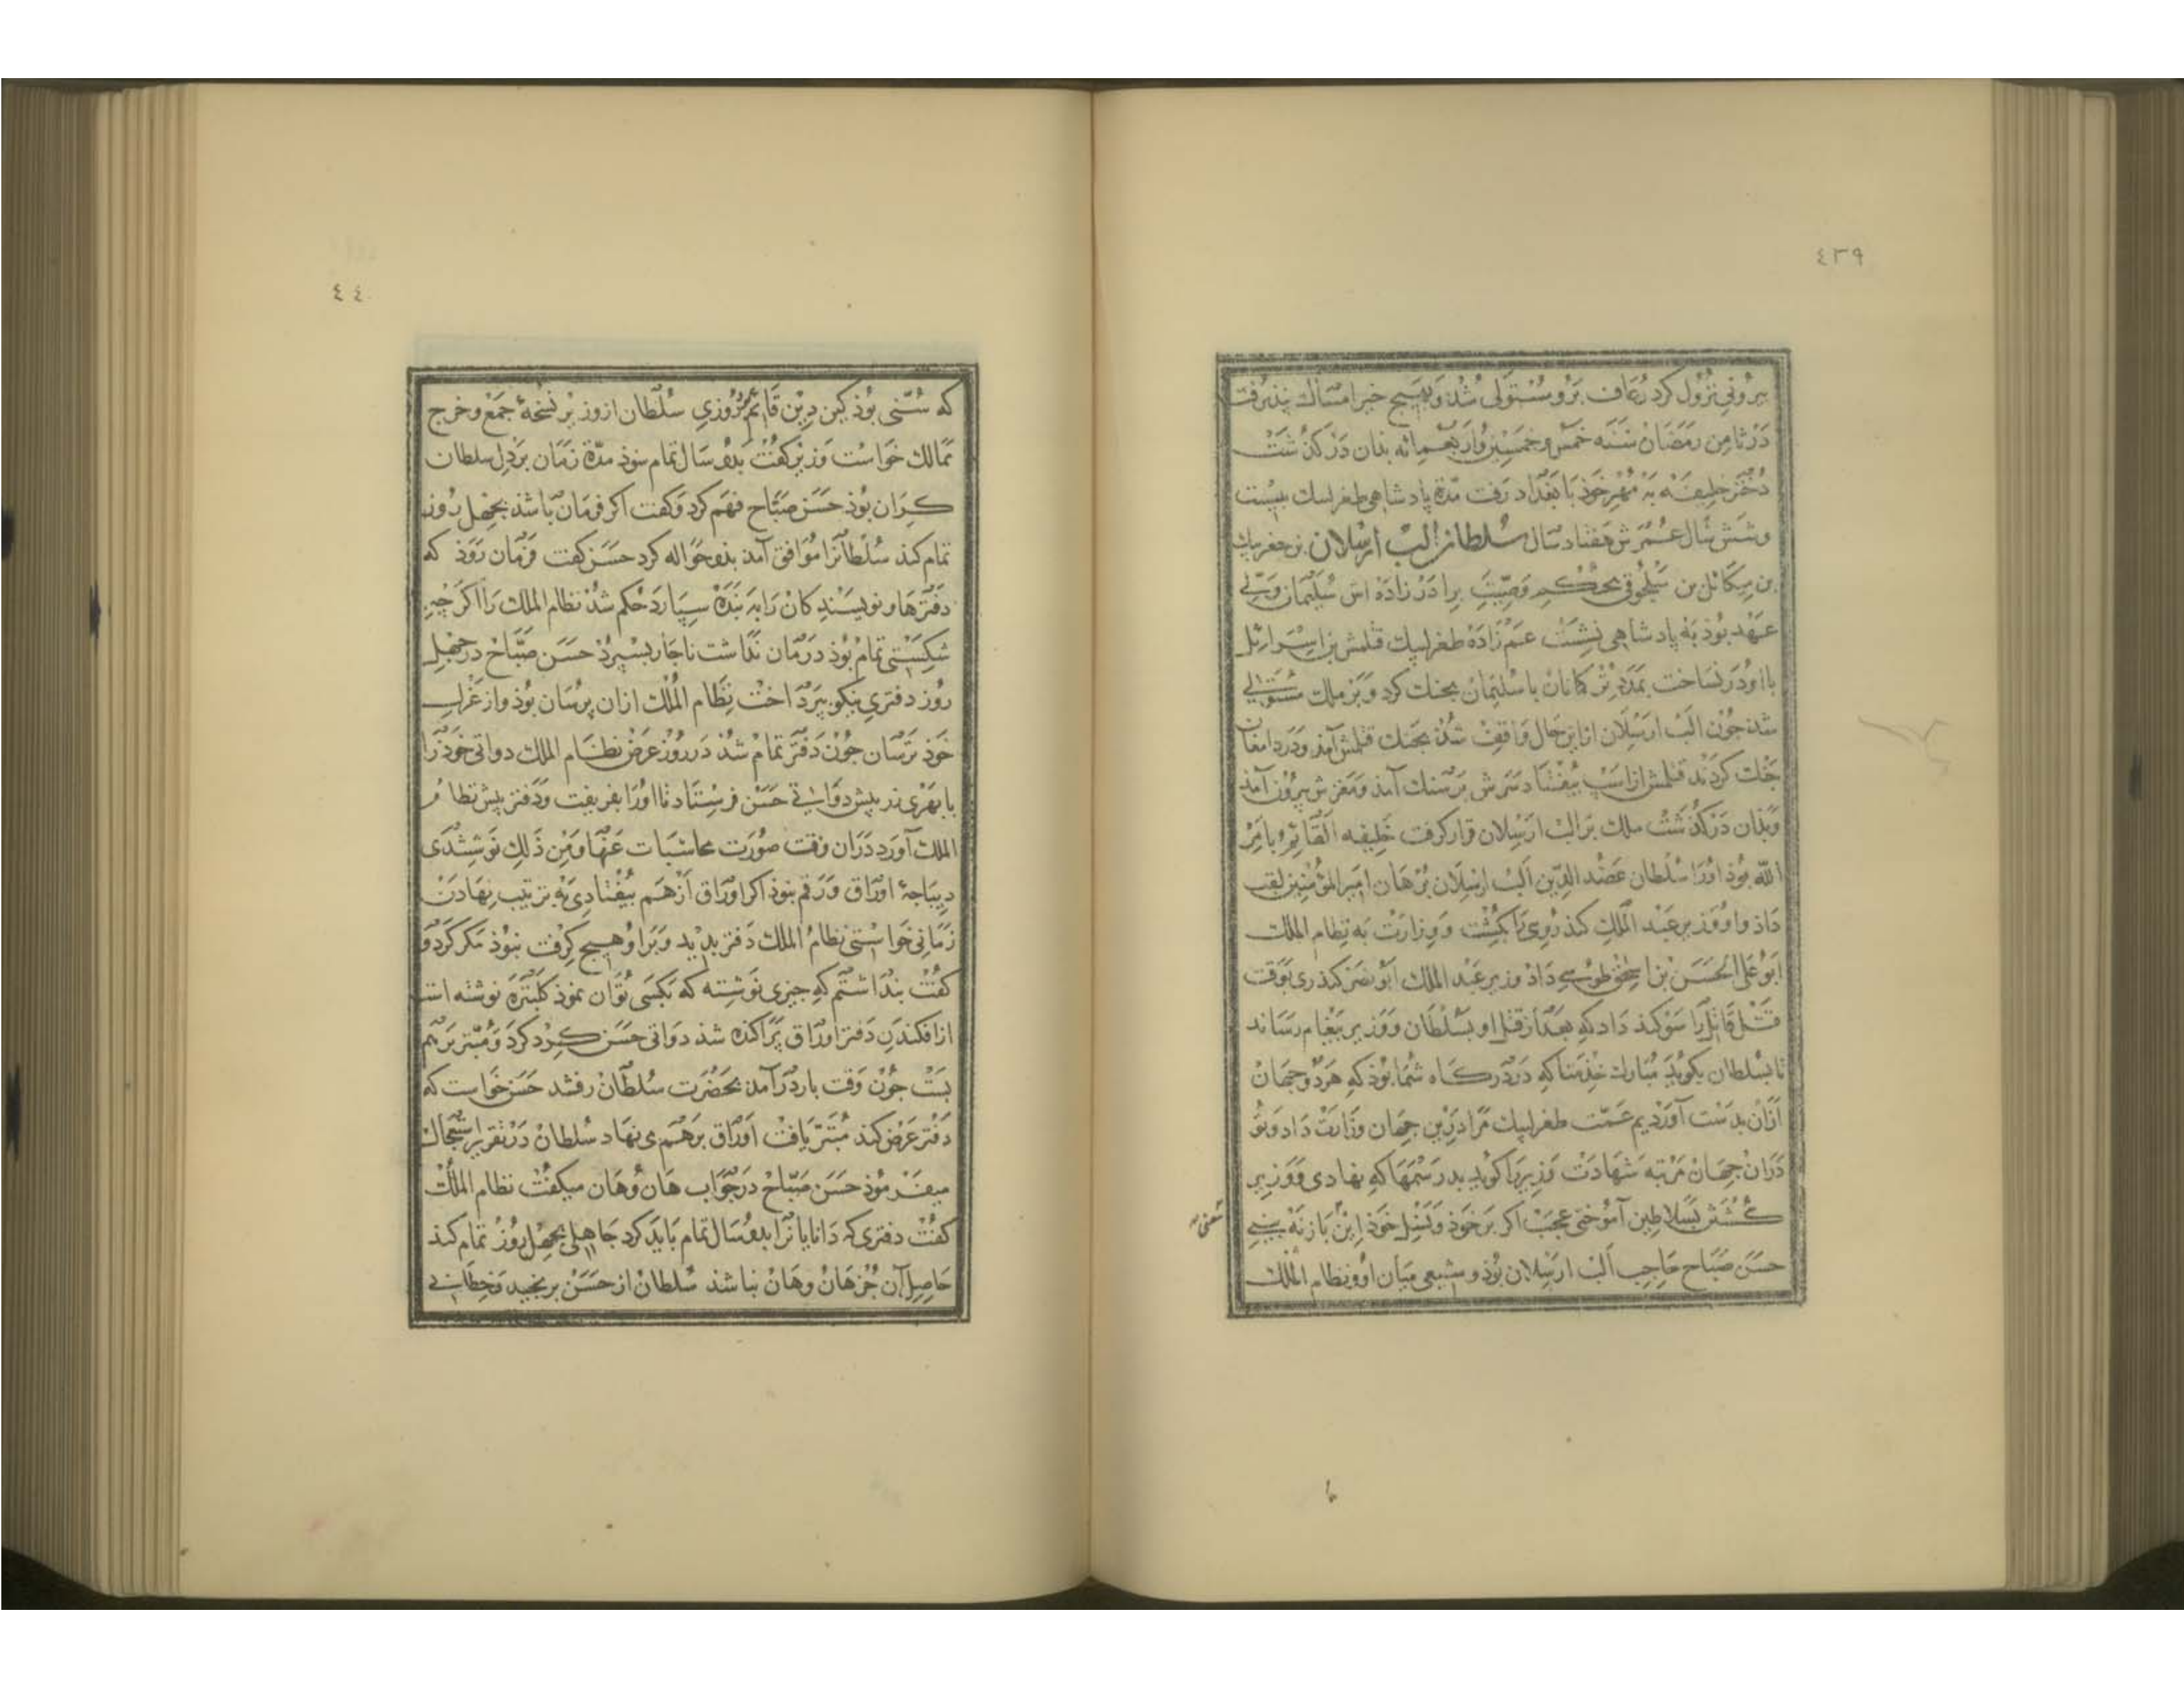 ٤٣٩
بیرونی نزول کرد رعاف برو مستولی شد و بهیچ خبر امساك نپذیرفت
در ثامن رمضان سنه خمس و خمسین و اربعمائه بذان درکذشت
دختر خلیفه به مهر خوذ با بغداد رفت مدة پادشاهی طغرلبك بیست
و شش سال عمرش هفتاد سال سلطان الب ارسلان بن جغربیك
بن میکائل بن سلجوق بحکم وصیت برادرزاده اش سلیمان ولی
عهد بوذ به پادشاهی نشست عم زاده طغرلبك قتلمش بن اسرائل
با او در نساخت بمدد ترکمانان با سلیمان بجنك کرد و بر ملك مستولی
شد جون الب ارسلان ازین حال واقف شد بجنك قتلمش آمد و در دامغان
جنك کردند قتلمش از اسب بیفتاد سرش بر سنك آمد و مغزش بیرون آمد
و بذان درکذشت ملك بر الب ارسلان قرار کرفت خلیفه القائم بامر
الله بوذ اورا سلطان عضد الدین الب ارسلان برهان امیر المؤمنین لقب
داذ و او وزیر عبد الملك کندروی را بکشت و وزارت به نظام الملك
ابو علی الحسن بن اسحق طوسی داد وزیر عبد الملك ابو نصر کندری بوقت
قتل قاتل را سوکند داد که بعد از قتل او بسلطان و وزیر پیغام رساند
تا بسلطان بکوید مبارك خذمتا که در درکاه شما بوذ که هر دو جهان
ازان بدست آوردیم عمت طغرلبك مرا درین جهان وزارت داد و تو
دران جهان مرتبه شهادت وزیر را کوید بد رسمها که نهادی و وزیر
کشتن بسلاطین آموختی عجب اکر بر خوذ و نسل خوذ این باز نه بینی
حسن صباح حاجب الب ارسلان بوذ و شیعی میان او و نظام الملك
٤٤٠
که سنی بوذ کین دین قائم روزی سلطان از وزیر نسخهٔ جمع و خرج
ممالك خواست وزیر کفت بدو سال تمام شوذ مدة زمان بر دل سلطان
کران بوذ حسن صباح فهم کرد و کفت اکر فرمان باشذ بجهل روز
تمام کند سلطانرا موافق آمد بذو حواله کرد حسن کفت فرمان روذ که
دفترها و نویسندکان را به بنده سپارد حکم شد نظام الملك را اکر چه
شکستی تمام بوذ درمان نداشت ناجار بسپرد حسن صباح در جهل
روز دفتری نیکو بپرداخت نظام الملك ازان پرسان بوذ و از غراب
خوذ ترسان جون دفتر تمام شد در روز عرض نظام الملك دواتی خوذ را
با بهری زر پیش دواتی حسن فرستاد تا اورا بفریفت و دفتر پیش نظام
الملك آورد دران وقت صورت محاسبات عنها و من ذلك نوشتندی
دیباجهٔ اوراق و رقم نبوذ اکر اوراق از هم بیفتادی به ترتیب نهادن
زمانی خواستی نظام الملك دفتر بدید و برا و هیچ کرفت نبوذ مکر کرد و
کفت بنداشتم که جیزی نوشته که بکسی توان نموذ کلبتره نوشته است
از افکندن دفتر اوراق پراکنده شد دواتی حسن کرد کرد و مبتر بر هم
بست جون وقت بار درآمد بحضرت سلطان رفتند حسن خواست که
دفتر عرض کند مبتر یافت اوراق بر هم می نهاد سلطان در تقریر استعجال
میفرموذ حسن صباح در جواب هان و هان میکفت نظام الملك
کفت دفتری که دانایانرا بدو سال تمام باید کرد جاهلی بجهل روز تمام کند
حاصل آن جز هان و هان نباشد سلطان از حسن برنجید و خطابی